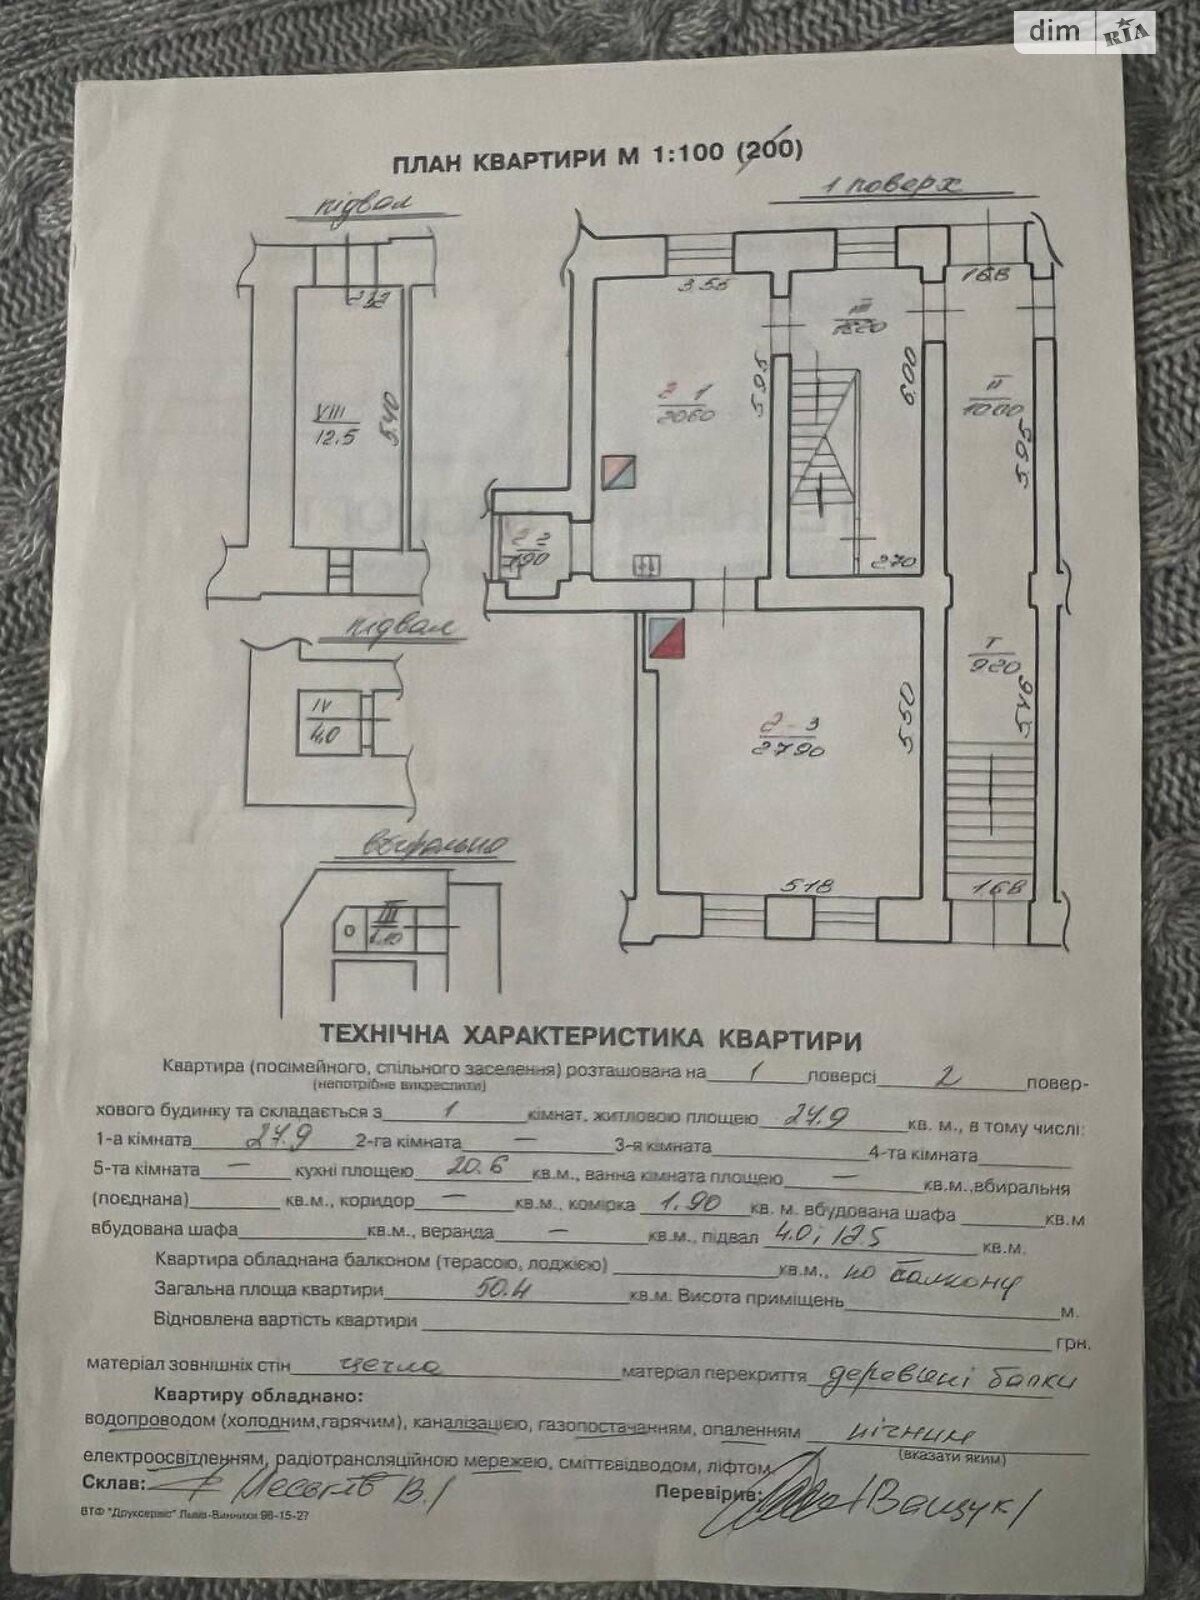 dim RIA
ПЛАН КВАРТИРИ М 1:100 (200)
підвал
1 поверх
2,32
VIII
12.5
5.40
3.55
2-1
2060
5.95
III
1620
6.00
2.70
168
II
1000
5.95
2-2
1.90
підвал
IV
4.0
2-3
2790
5.50
518
I
920
5.46
1.68
вбиральня
III
1.10
ТЕХНІЧНА ХАРАКТЕРИСТИКА КВАРТИРИ
Квартира (посімейного, спільного заселення) розташована на 1 поверсі 2 повер-
(непотрібне викреслити)
хового будинку та складається з 1 кімнат, житловою площею 27.9 кв. м., в тому числі:
1-а кімната 27.9 2-га кімната — 3-я кімната 4-та кімната
5-та кімната — кухні площею 20.6 кв.м., ванна кімната площею — кв.м.,вбиральня
(поєднана) кв.м., коридор — кв.м., комірка 1.90 кв. м. вбудована шафа кв.м
вбудована шафа кв.м., веранда — кв.м., підвал 4.0; 12.5 кв.м.
Квартира обладнана балконом (терасою, лоджією) кв.м., по балкону
Загальна площа квартири 50.4 кв.м. Висота приміщень м.
Відновлена вартість квартири грн.
матеріал зовнішніх стін цегла матеріал перекриття деревяні балки
Квартиру обладнано:
водопроводом (холодним,гарячим), каналізацією, газопостачанням, опаленням пічним
(вказати яким)
електроосвітленням, радіотрансляційною мережею, сміттєвідводом, ліфтом.
Склав: В./
Перевірив: /Ващук/
ВТФ "Друксервіс" Львів-Винники 96-15-27